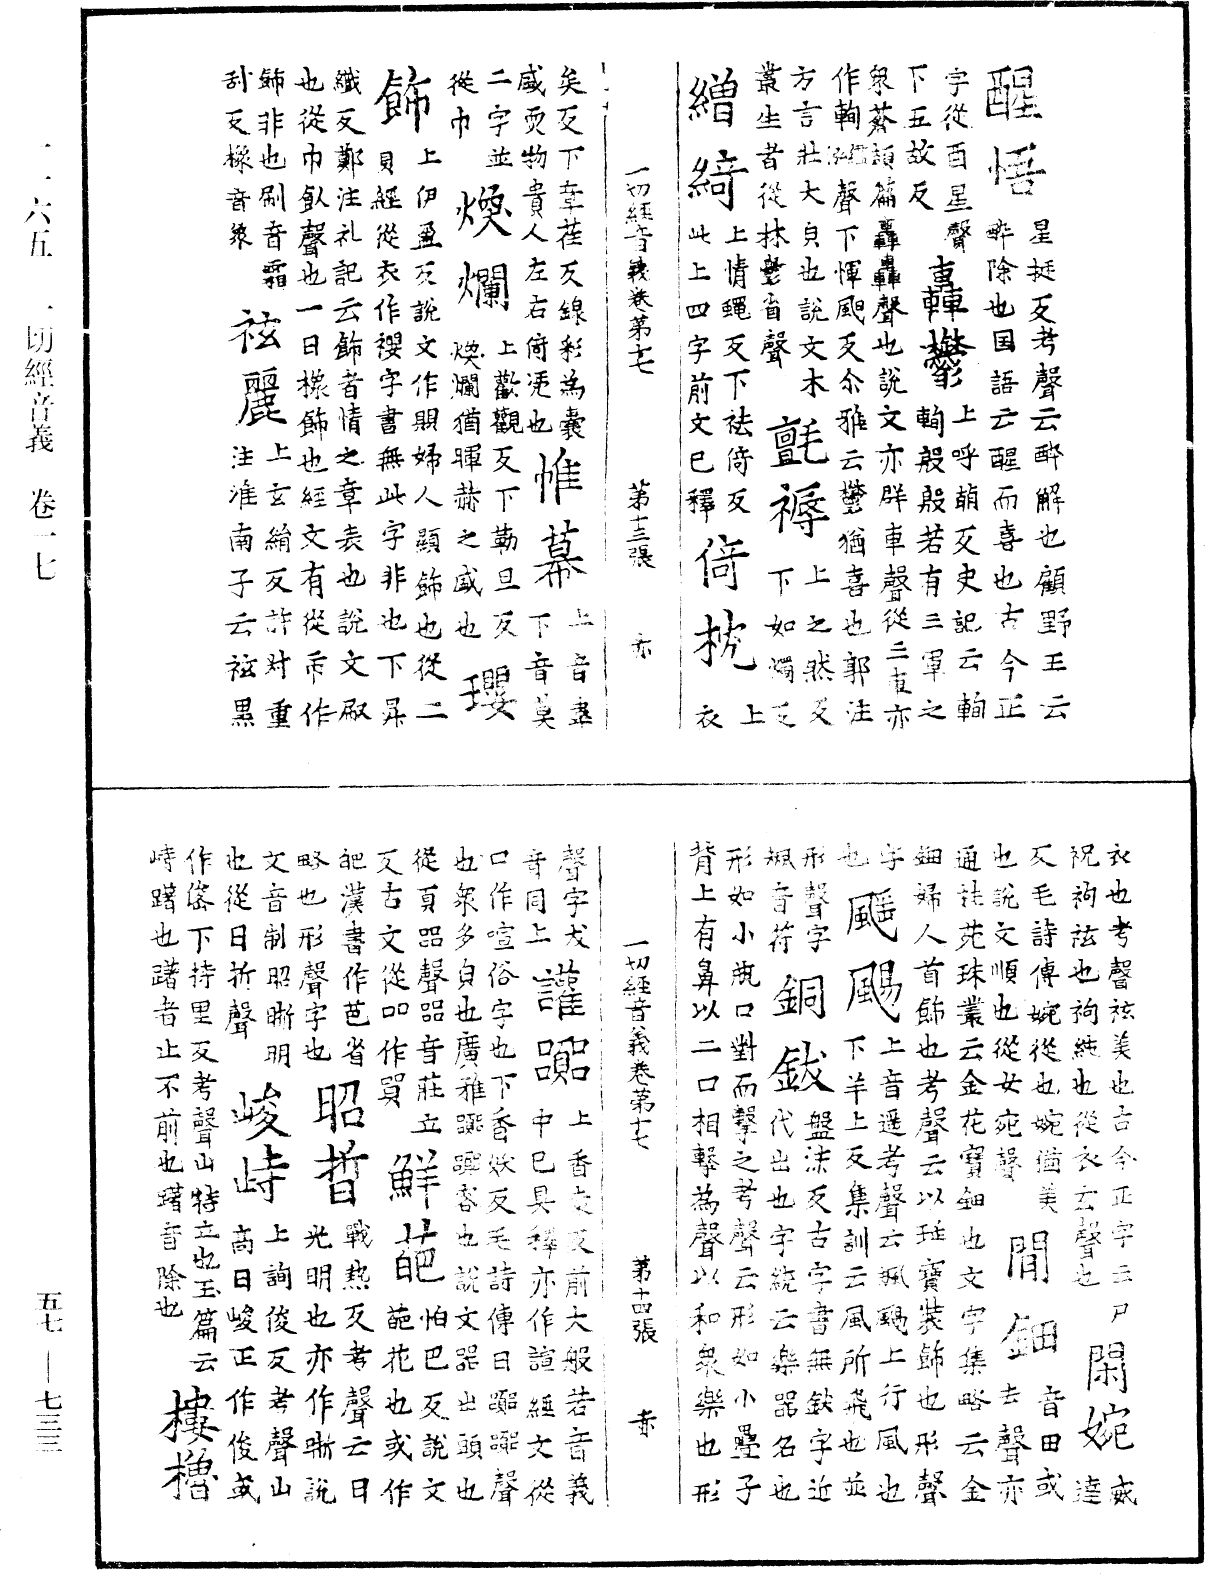 一一六五 一切經音義 卷一七
醒悟 星挺反考聲云醉解也顧野王云
醉除也国語云醒而喜也古今正
字從酉星聲
下五故反
轟鬱 上呼萌反史記云輷
輷殷殷若有三軍之
衆蒼頡篇轟轟聲也說文亦群車聲從三車亦
作輷聲下惲颶反尒雅云鬱猶喜也郭注
方言壯大皃也說文木
叢生者從林鬱省聲
氈褥 上之然反
下如濁反
繒綺 上情蠅反下袪倚反
此上四字前文已釋
倚枕 上
衣
一切經音義卷第十七 第十三張 亦
矣反下章荏反線彩為囊
盛耎物貴人左右倚凴也
帷幕 上音韋
下音莫
二字並
從巾
煥爛 上歡觀反下勒旦反
煥爛猶暉赫之盛也
瓔
飾 上伊盈反說文作賏婦人頸飾也從二
貝經從衣作褸字書無此字非也下昇
織反鄭注礼記云飾者情之章表也說文㕞
也從巾飤聲也一曰橡飾也經文有從帀作
餙非也刷音霜
刮反橡音象
袨麗 上玄絹反許叔重
注淮南子云袨黑
衣也考聲袨美也古今正字云尸
祝袀袨也袀純也從衣玄聲也
閑婉 威
達
反毛詩傳婉從也婉猶美
也說文順也從女宛聲
閒鈿 音田或
去聲亦
通祛苑珠叢云金花寶鈿也文字集略云金
鈿婦人首飾也考聲云以珤寶裝飾也形聲
字
也
颻颺 上音遥考聲云颻颺上行風也
下羊上反集訓云風所飛也並
形聲字
颻音符
銅鈸 盤沫反古字書無鈸字近
代出也字統云樂器名也
形如小瓶口對而擊之考聲云形如小疊子
背上有鼻以二口相擊為聲以和衆樂也形
一切經音義卷第十七 第十四張 亦
聲字犮
音同上
讙嚻 上香袁反前大般若音義
中已具釋亦作諠經文從
口作喧俗字也下香妖反毛詩傳曰嚻嚻聲
也衆多皃也廣雅嚻嚻容也說文嚻出頭也
從頁㗊聲㗊音莊立
反古文從吅作買
鮮葩 怕巴反說文
葩花也或作
皅漢書作芭省
略也形聲字也
昭晢 戰熱反考聲云日
光明也亦作晣說
文音制昭晣明
也從日折聲
峻峙 上詢俊反考聲山
高曰峻正作俊或
作㟅下持里反考聲山特立也玉篇云
峙躇也躇者止不前也躇音除也
樓櫓
五七 — 七三三